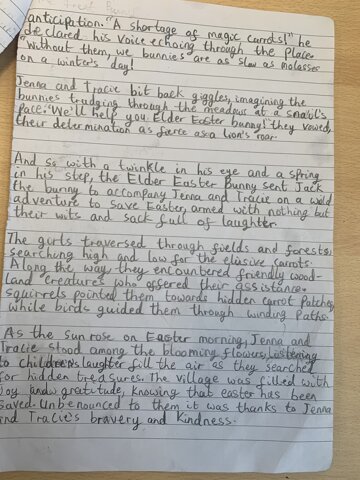 anticipation. "A shortage of magic carrots!" he
declared his voice echoing through the place.
"Without them, we bunnies are as slow as molasses
on a winter's day!
Jenna and Tracie bit back giggles, imagining the
bunnies trudging through the meadows at a snail's
pace. "We'll help you Elder Easter Bunny!" they vowed,
their determination as fierce as a lion's roar
And so with a twinkle in his eye and a spring
in his step, the Elder Easter Bunny sent Jack
the bunny to accompany Jenna and Tracie on a wild
adventure to save Easter, armed with nothing but
their wits and sack full of laughter.
The girls traversed through fields and forests,
searching high and low for the elusive carrots.
Along the way, they encountered friendly wood-
land creatures who offered their assistance.
squirrels pointed them towards hidden carrot patches,
while birds guided them through winding paths.
As the sun rose on Easter morning, Jenna and
Tracie stood among the blooming flowers, listening
to children's laughter fill the air as they searched
for hidden treasures. The village was filled with
joy and gratitude, knowing that easter has been
saved. Unbenounced to them it was thanks to Jenna
and Tracie's bravery and kindness.